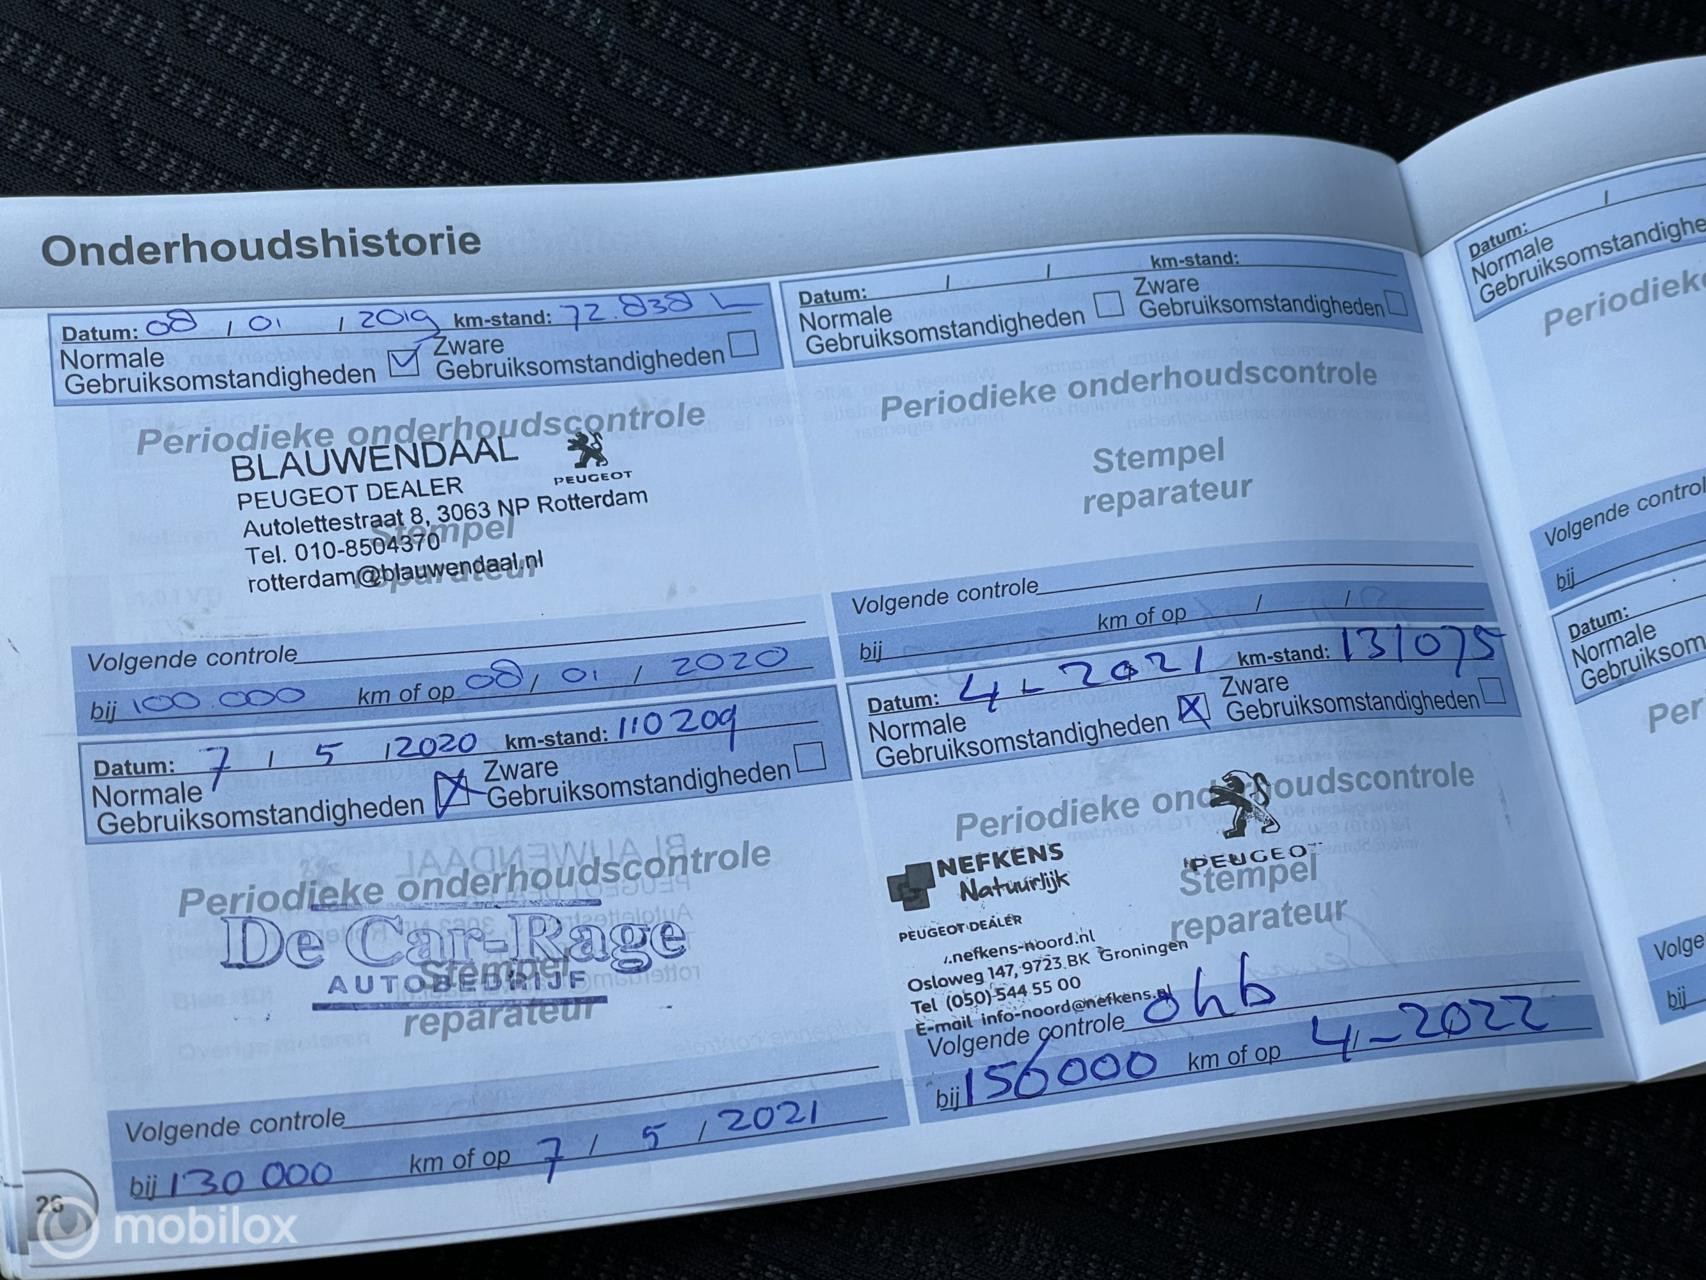 Onderhoudshistorie
Datum: 08 / 01 / 2019 km-stand: 72.838
Normale
Gebruiksomstandigheden
Zware
Gebruiksomstandigheden
Periodieke onderhoudscontrole
BLAUWENDAAL
PEUGEOT
PEUGEOT DEALER
Autolettestraat 8, 3063 NP Rotterdam
Stempel
Tel. 010-8504370
reparateur
rotterdam@blauwendaal.nl
Volgende controle
bij 100.000 km of op 08 / 01 / 2020
Datum: 7 / 5 / 2020 km-stand: 110209
Normale
Gebruiksomstandigheden
Zware
Gebruiksomstandigheden
Periodieke onderhoudscontrole
De Car-Rage
Stempel
AUTOBEDRIJF
reparateur
Volgende controle
bij 130 000 km of op 7 / 5 / 2021
26
mobilox
Datum: / / km-stand:
Normale
Gebruiksomstandigheden
Zware
Gebruiksomstandigheden
Periodieke onderhoudscontrole
Stempel
reparateur
Volgende controle
bij km of op / /
Datum: 4 - 2021 km-stand: 131075
Normale
Gebruiksomstandigheden
Zware
Gebruiksomstandigheden
Periodieke onderhoudscontrole
NEFKENS
Natuurlijk
PEUGEOT
Stempel
reparateur
PEUGEOT DEALER
.nefkens-noord.nl
Osloweg 147, 9723 BK Groningen
Tel (050) 544 55 00
E-mail info-noord@nefkens.nl
Volgende controle ohb
bij 156000 km of op 4 - 2022
Datum: /
Normale
Gebruiksomstandighe
Periodieke
Volgende control
bij
Datum:
Normale
Gebruiksom
Per
Volge
bij